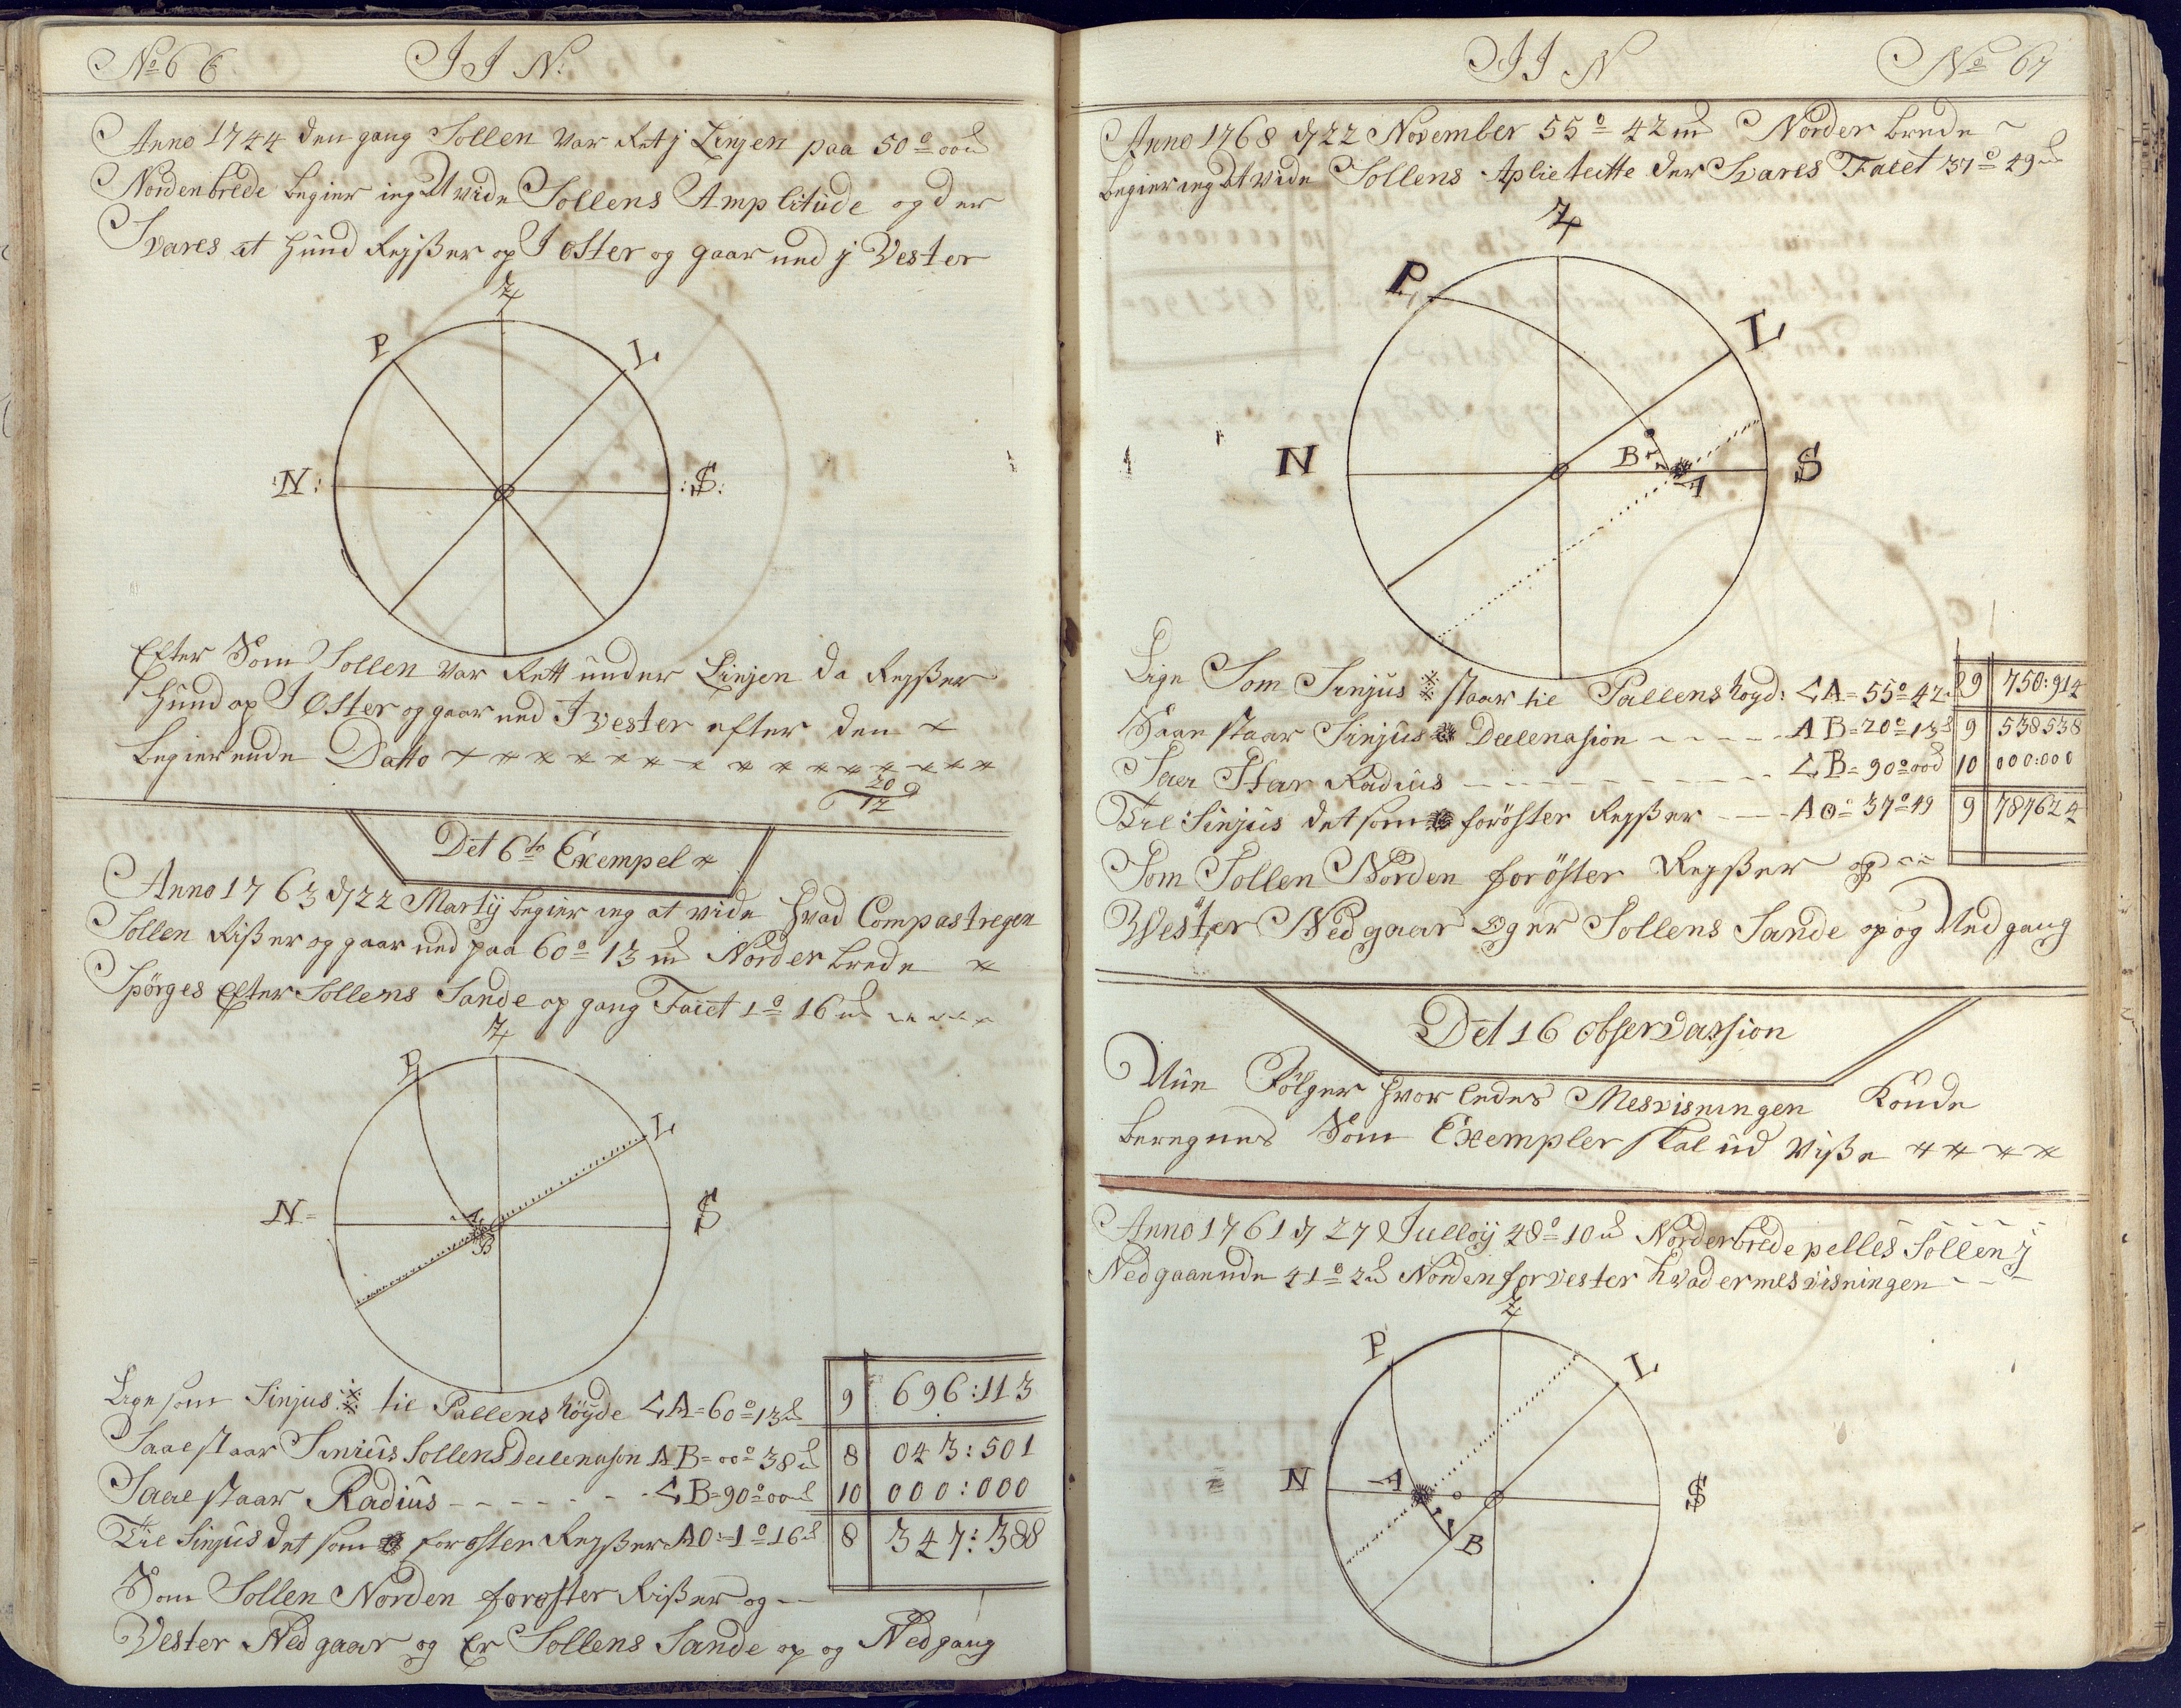 No 66
I I N:
Anno 1744 den gang Sollen var Ret j Linjen paa 50° 00
Norden brede begier ieg At vide Sollens Amplitude og der
Svares at hund Rejßer op I oster og gaar ned j Vester
Z
P
L
N:
S:
Efter Som Sollen var Rett under Linjen da Rejßer
hund op I Oster og gaar ned I vester efter den
begierende Datto
20
12
Det 6te Exempel
Anno 1763 d 22 Martij begier ieg at vide hvad Compastregen
Sollen Rißer og gaar ned paa 60° 13 m Norder brede
Spörges efter Sollens Sande op gang Facet 1° 16
Z
P
L
N
S
A
B
Lige som Sinjus til Pollens höyde <A=60°13 9 696:113
Saae staar Sinius Sollens Declenasion AB=00°38 8 043:501
Saae staar Radius <B=90°00 10 000:000
Til Sinjus det som for oster Rejßer A0=1°16 8 347:388
Som Sollen Norden for oster Rißer og
Vester Ned gaar og Er Sollens Sande op og Nedgang
I I N
No 67
Anno 1768 d 22 November 55° 42 m Norder brede
begier ieg At vide Sollens Aplietutte der Svares Facet 37° 49
Z
P
L
B
N
S
A
Lige Som Sinjus staar til Pollens hoyd: <A=55°42 9 750:914
Saae staar Sinjus Declenasion AB=20°13 9 538538
Saa Star Radius <B=90°00 10 000:000
Til Sinjus det som foröster Rejßer A0=37°49 9 787624
Som Sollen Norden for öster Rejßer op
Wester Ned gaar Og er Sollens Sande op og Nedgang
Det 16 observassion
Nun Fölger hvorledes Mesvisningen Konde
beregnes Som Exempler skal ud viße
Anno 1761 d 27 Julloij 48° 10 Norderbrede pelles Sollen j
Nedgaaende 41° 2 Norden for vester hvad er mesvisningen
Z
P
L
N
A
o
S
B